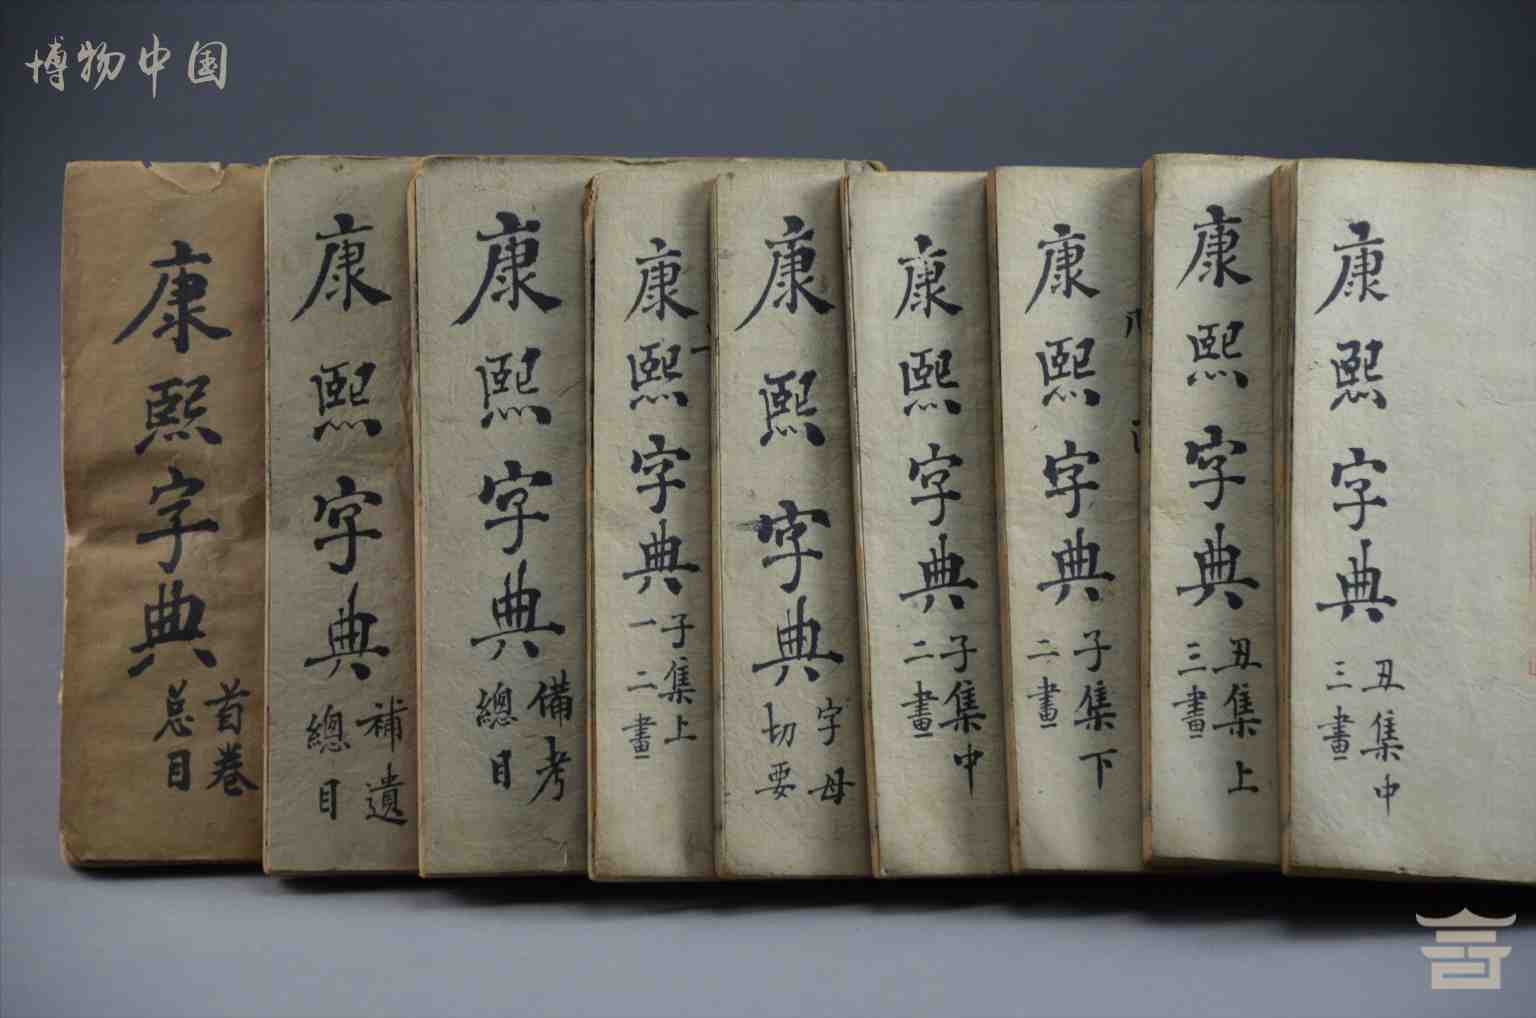 博物中国
康熙字典
首卷
总目
康熙字典
補遺
總目
康熙字典
備考
總目
康熙字典
子集上
一二畫
康熙字典
字母
切要
康熙字典
子集中
二畫
康熙字典
子集下
二畫
康熙字典
丑集上
三畫
康熙字典
丑集中
三畫